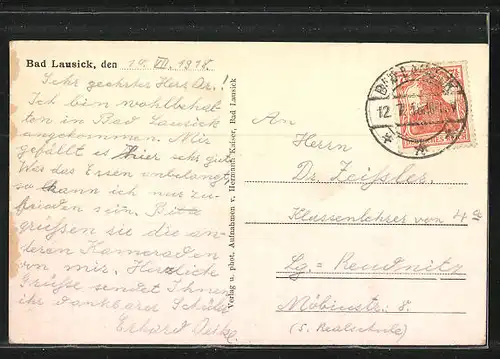 Bad Lausick, den 14. VII. 1918.
Sehr geehrter Herr Dr.!
Ich bin wohlbehal-
ten in Bad Lausick
angekommen. Mir
gefällt es hier sehr gut.
Was das Essen anbelangt
so kann ich nur zu-
frieden sein. Bitte
grüssen sie die an-
deren Kameraden
von mir. Herzliche
Grüße sendet Ihnen
ihr dankbarer Schüler
Erhard
Verlag u. phot. Aufnahmen v. Hermann Kaiser, Bad Lausick
BAD LAUSICK
12. 7. 18
An
Herrn
Dr. Zeißler
Klassenlehrer von 4a
Lg.=Reudnitz
Möbiusstr. 8.
(5. Realschule)